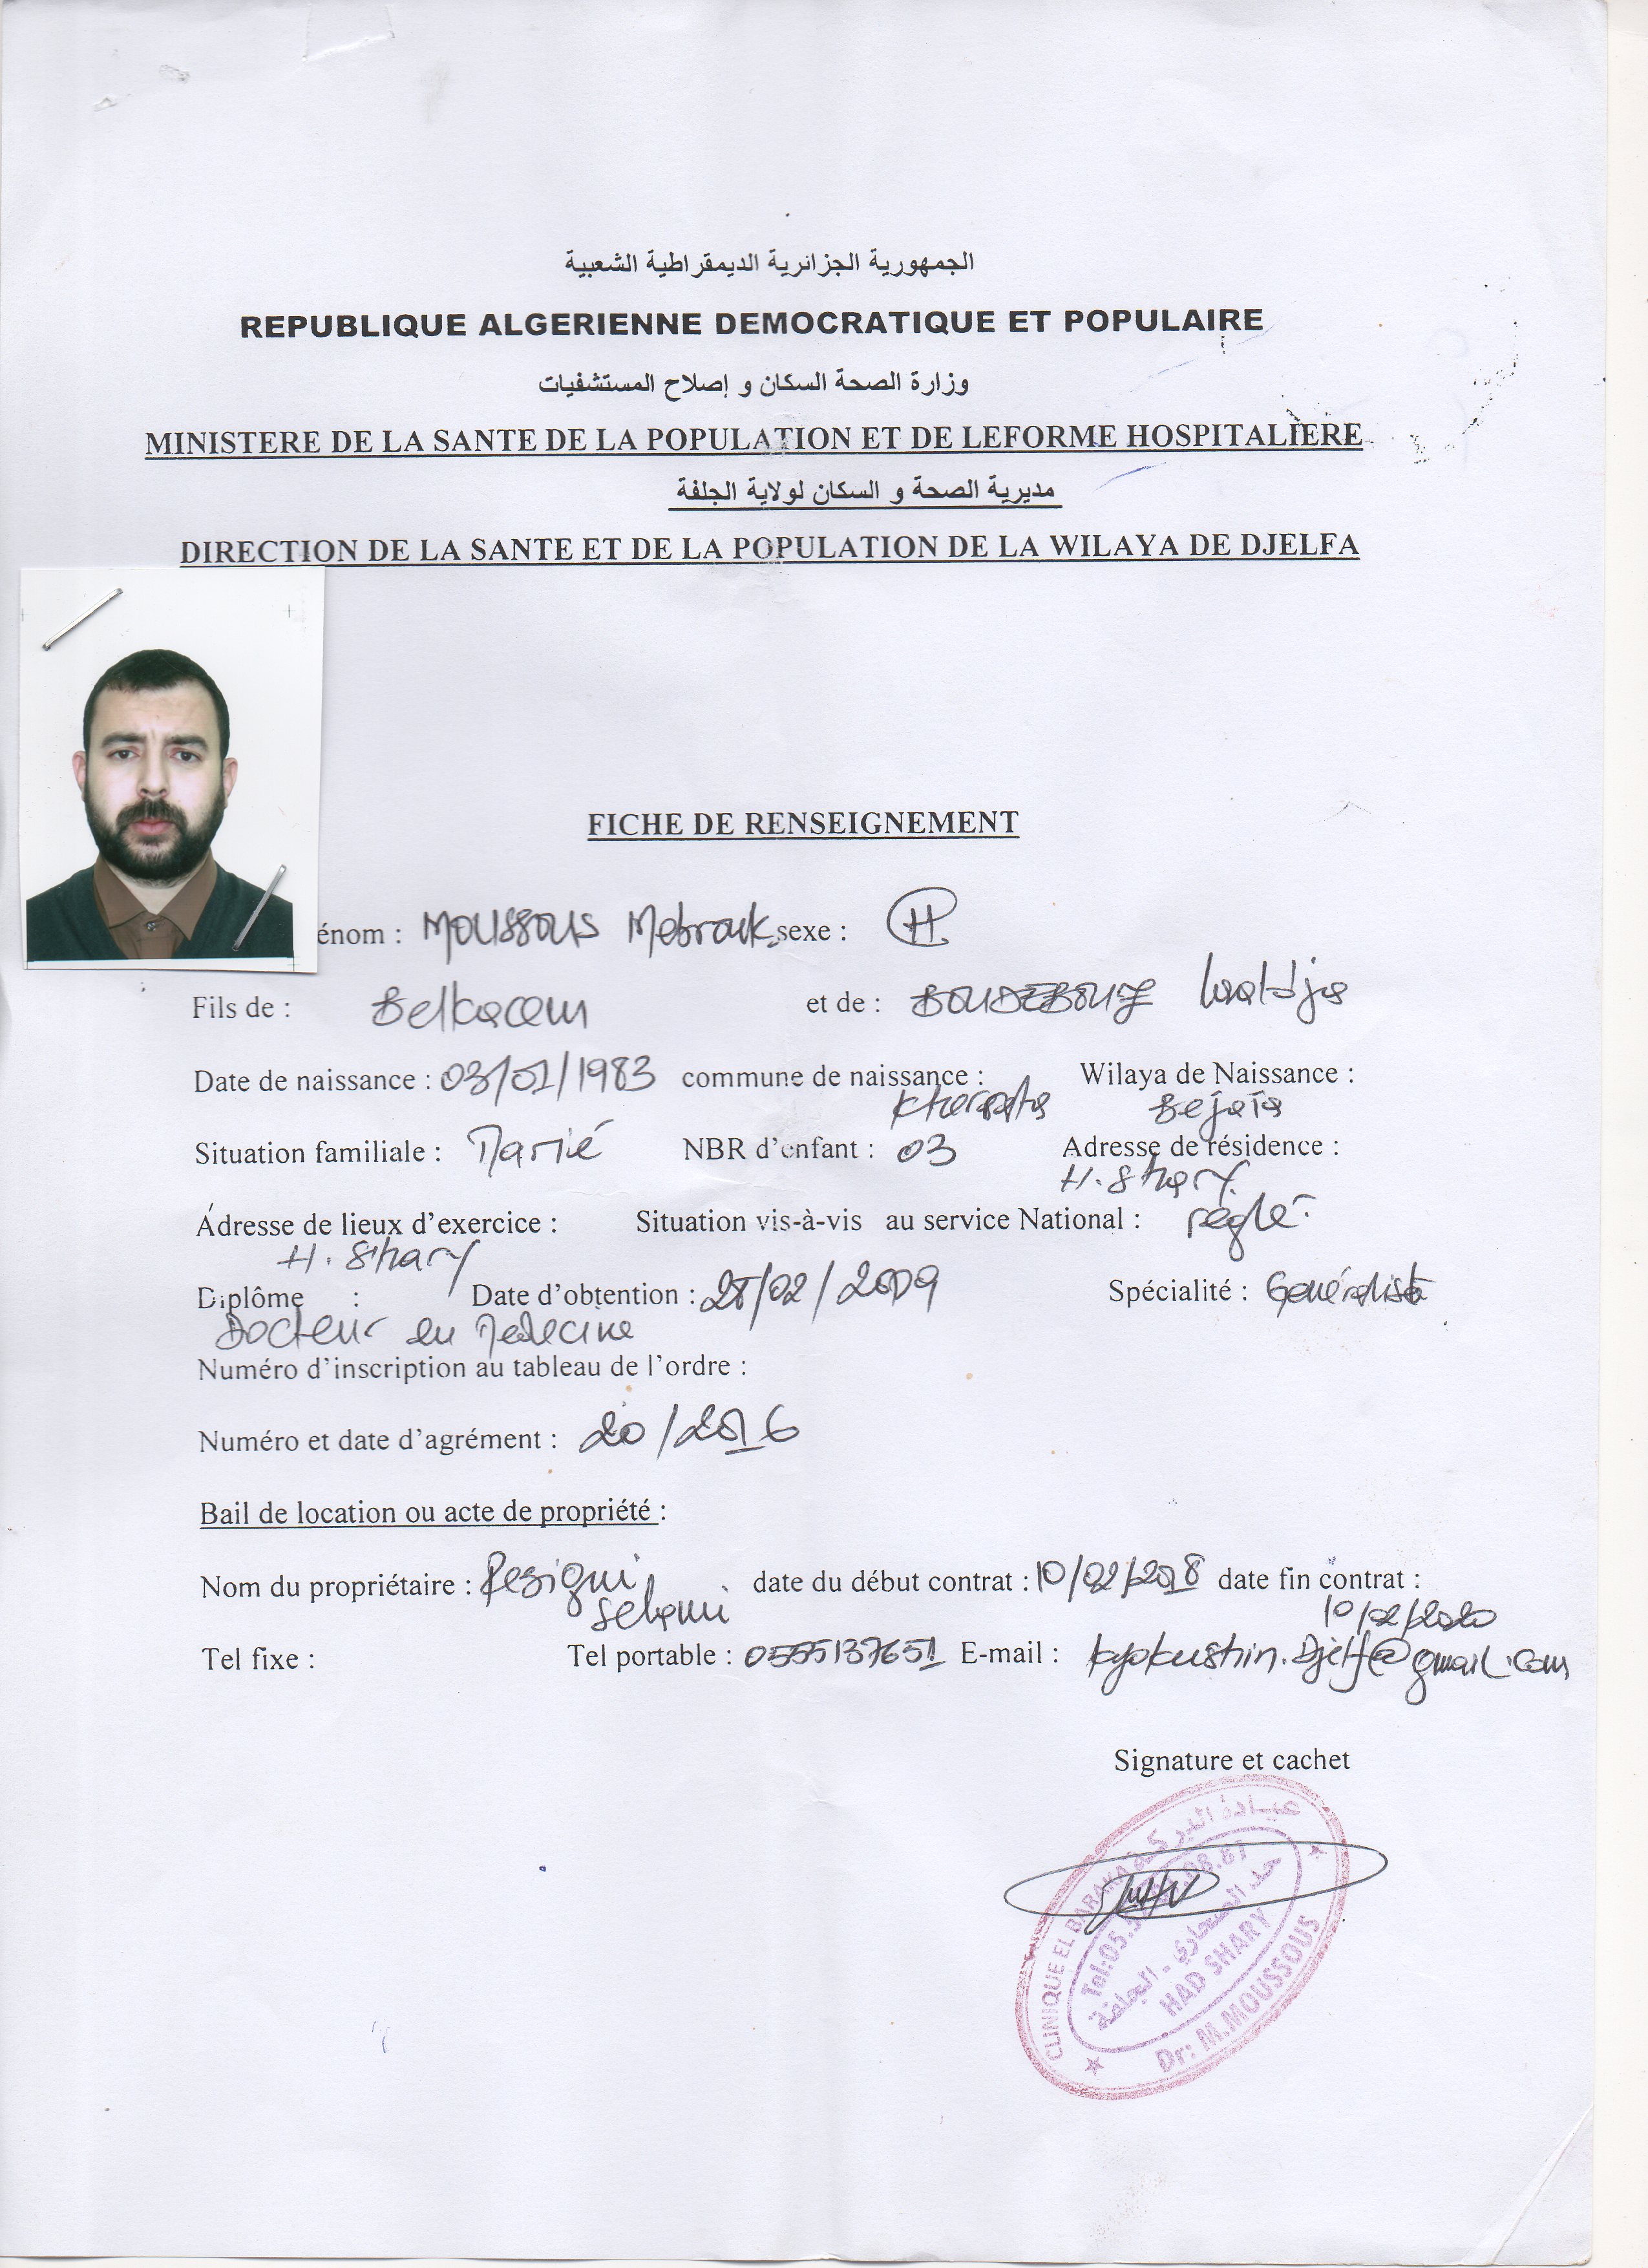 الجمهورية الجزائرية الديمقراطية الشعبية
REPUBLIQUE ALGERIENNE DEMOCRATIQUE ET POPULAIRE
وزارة الصحة السكان و إصلاح المستشفيات
MINISTERE DE LA SANTE DE LA POPULATION ET DE LEFORME HOSPITALIERE
مديرية الصحة و السكان لولاية الجلفة
DIRECTION DE LA SANTE ET DE LA POPULATION DE LA WILAYA DE DJELFA
FICHE DE RENSEIGNEMENT
énom : MOUSSOUS Mebrouk sexe : H
Fils de : Belkacem et de :
Date de naissance : 03/01/1983 commune de naissance : Wilaya de Naissance :
Kherrata Bejaia
Situation familiale : Marié NBR d'enfant : 03 Adresse de résidence :
H. Shary
Adresse de lieux d'exercice : Situation vis-à-vis au service National : réglé.
H. Shary
Diplôme : Date d'obtention : 28/02/2009 Spécialité : Généraliste
Docteur en Médecine
Numéro d'inscription au tableau de l'ordre :
Numéro et date d'agrément : 20/2016
Bail de location ou acte de propriété :
Nom du propriétaire : date du début contrat : 10/02/2018 date fin contrat :
10/02/2020
Tel fixe : Tel portable : 0555137651 E-mail : kyokushin.Djelfa@gmail.com
Signature et cachet
عيادة البركة
CLINIQUE EL BARAKA
Tel:05.
حد الصحاري - الجلفة
HAD SHARY
Dr: M.MOUSSOUS